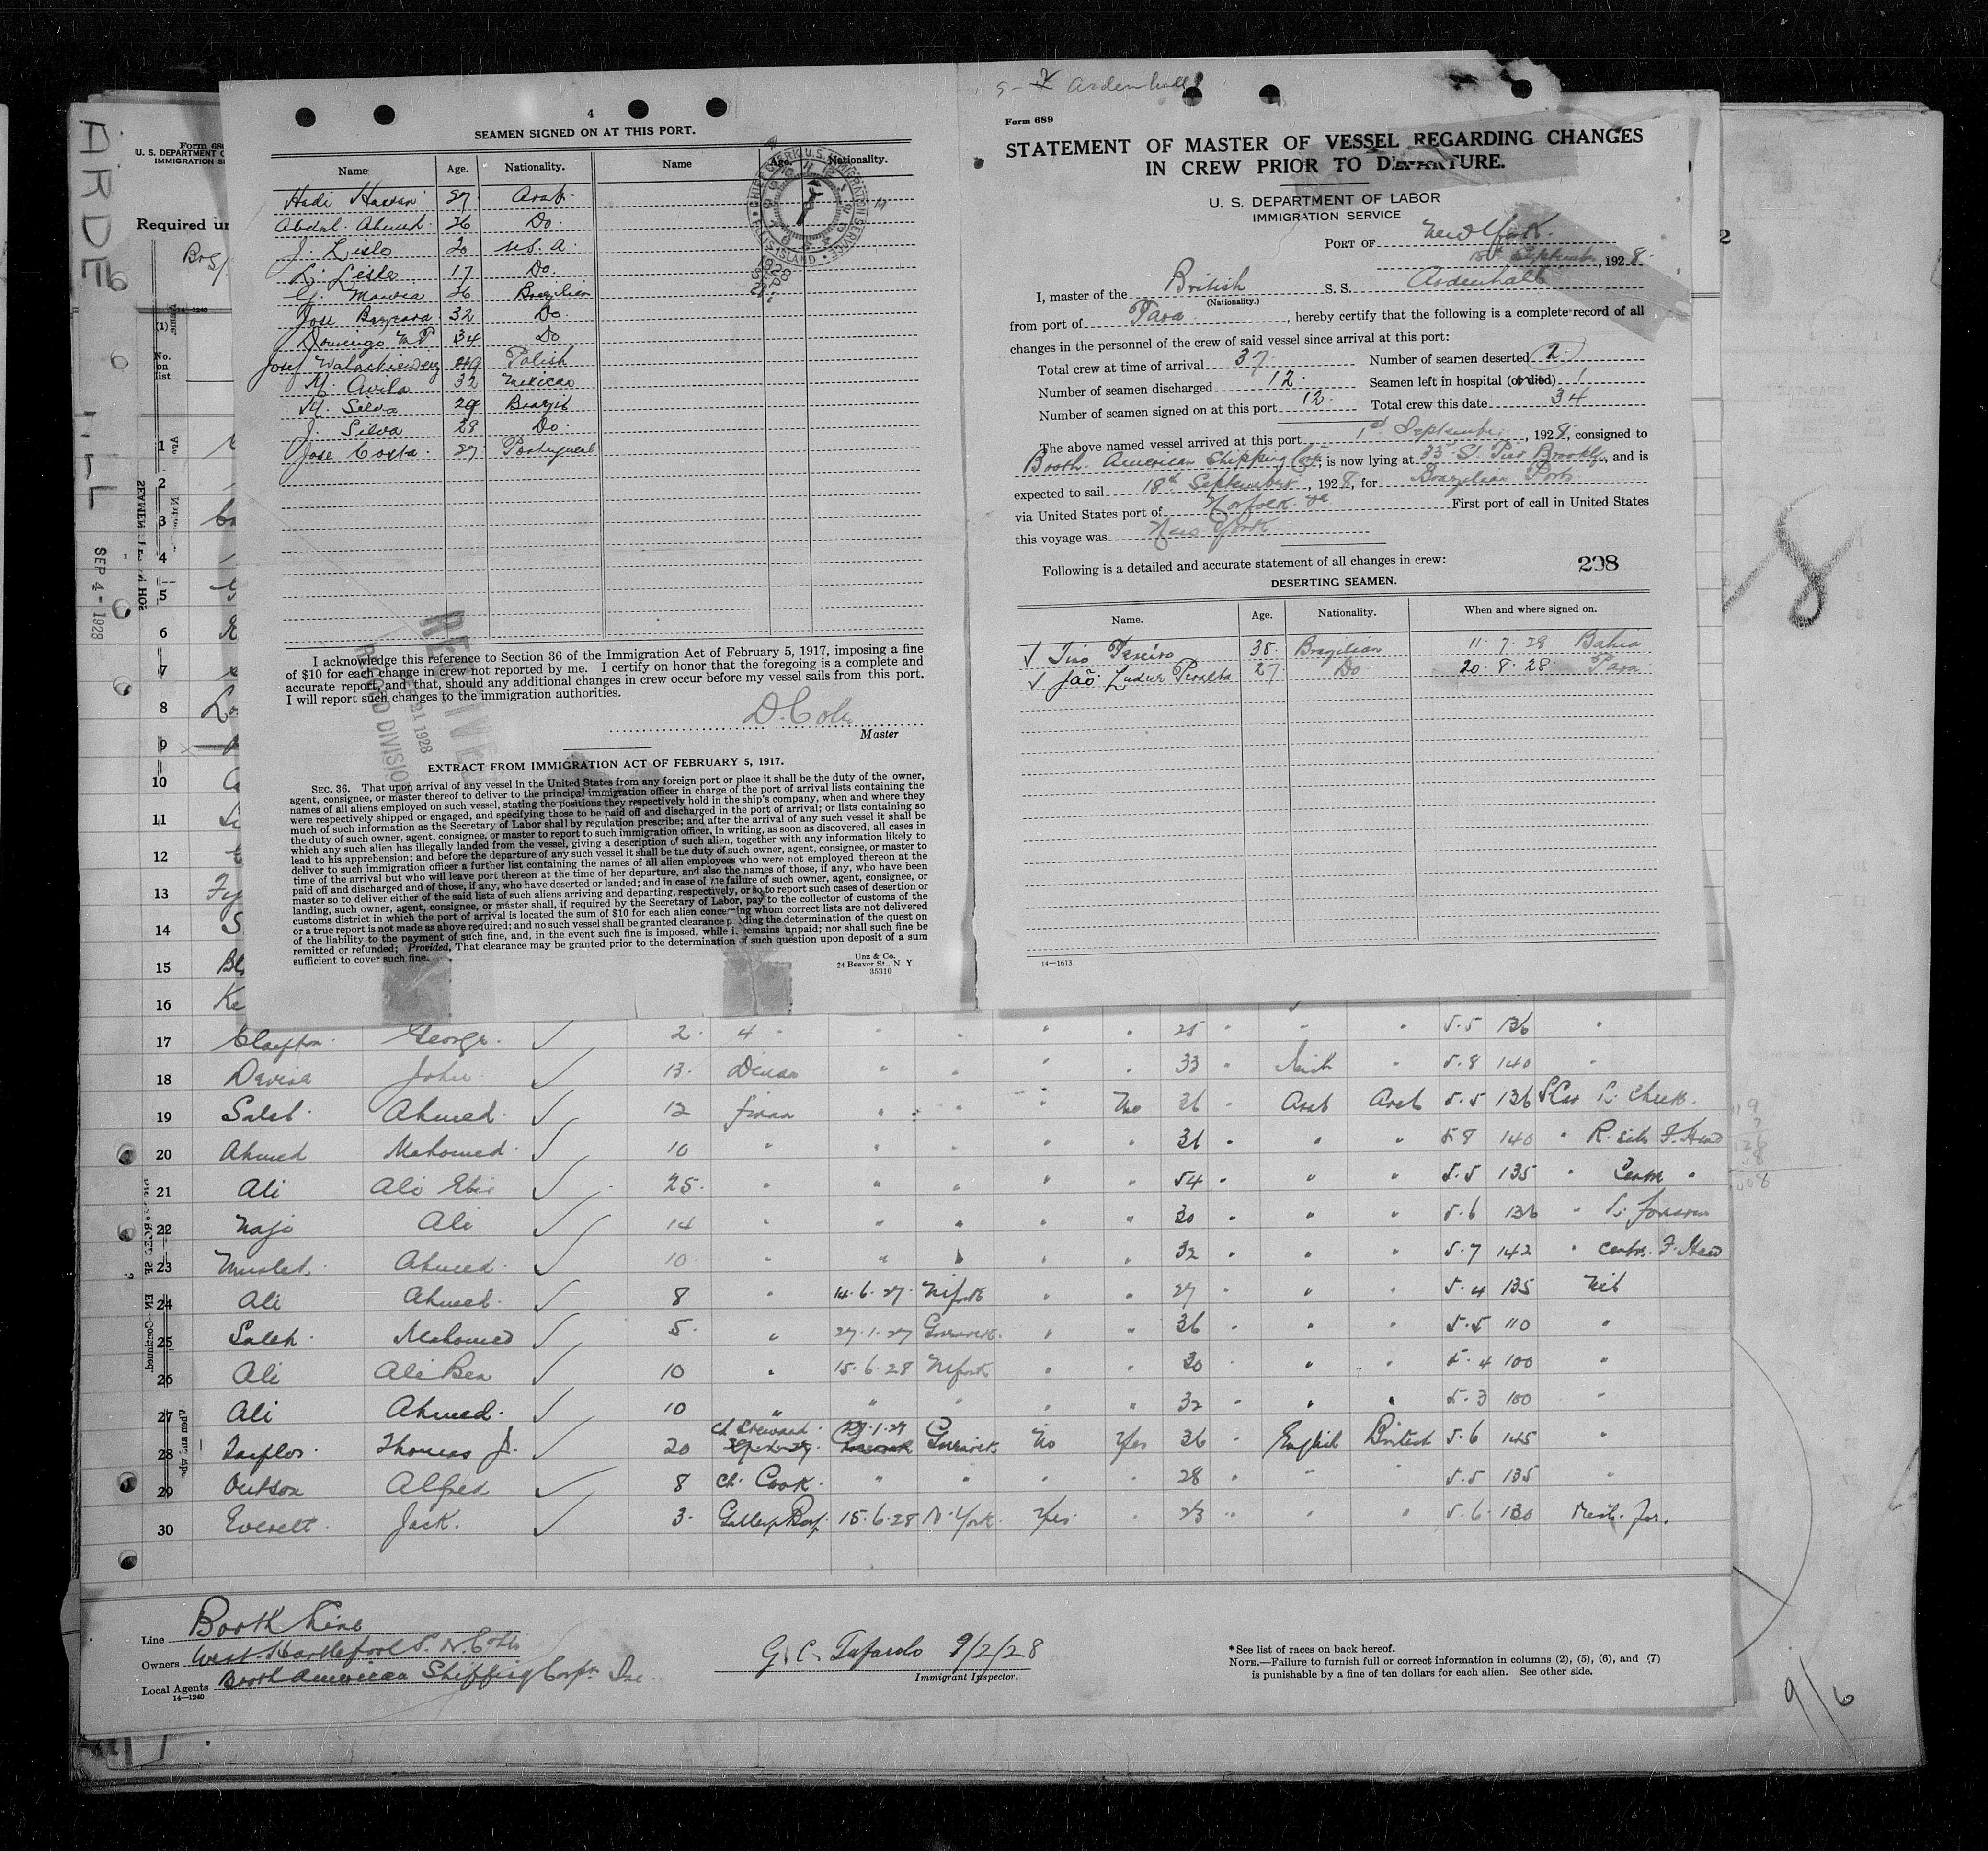 4
SEAMEN SIGNED ON AT THIS PORT.
Name Age. Nationality. Name Age. Nationality.
Hadi Hassan 27 Arab.
Abdul. Ahmed. 26 Do.
J. Lislo 20 U.S.A.
L. Lislo 17 Do.
36 Brazilian
Jose 32 Do.
Domingo 34 Do
Josef Polish
M. Avila 32 Mexican
M. Silva 29 Brazil
J. Silva 28 Do.
Jose Costa. 27 Portugueal
I acknowledge this reference to Section 36 of the Immigration Act of February 5, 1917, imposing a fine
of $10 for each change in crew not reported by me. I certify on honor that the foregoing is a complete and
accurate report, and that, should any additional changes in crew occur before my vessel sails from this port,
I will report such changes to the immigration authorities.
D. Cole
Master
RECEIVED
21 1928
RECORD DIVISION
EXTRACT FROM IMMIGRATION ACT OF FEBRUARY 5, 1917.
SEC. 36. That upon arrival of any vessel in the United States from any foreign port or place it shall be the duty of the owner,
agent, consignee, or master thereof to deliver to the principal immigration officer in charge of the port of arrival lists containing the
names of all aliens employed on such vessel, stating the positions they respectively hold in the ship's company, when and where they
were respectively shipped or engaged, and specifying those to be paid off and discharged in the port of arrival; or lists containing so
much of such information as the Secretary of Labor shall by regulation prescribe; and after the arrival of any such vessel it shall be
the duty of such owner, agent, consignee, or master to report to such immigration officer, in writing, as soon as discovered, all cases in
which any such alien has illegally landed from the vessel, giving a description of such alien, together with any information likely to
lead to his apprehension; and before the departure of any such vessel it shall be the duty of such owner, agent, consignee, or master to
deliver to such immigration officer a further list containing the names of all alien employees who were not employed thereon at the
time of the arrival but who will leave port thereon at the time of her departure, and also the names of those, if any, who have been
paid off and discharged and of those, if any, who have deserted or landed; and in case of the failure of such owner, agent, consignee, or
master so to deliver either of the said lists of such aliens arriving and departing, respectively, or so to report such cases of desertion or
landing, such owner, agent, consignee, or master shall, if required by the Secretary of Labor, pay to the collector of customs of the
customs district in which the port of arrival is located the sum of $10 for each alien concerning whom correct lists are not delivered
or a true report is not made as above required; and no such vessel shall be granted clearance pending the determination of the quest on
of the liability to the payment of such fine, and, in the event such fine is imposed, while it remains unpaid; nor shall such fine be
remitted or refunded; Provided, That clearance may be granted prior to the determination of such question upon deposit of a sum
sufficient to cover such fine.
Unz & Co.
24 Beaver St., N Y
35310
Ardenhall
Form 689
STATEMENT OF MASTER OF VESSEL REGARDING CHANGES
IN CREW PRIOR TO DEPARTURE.
U. S. DEPARTMENT OF LABOR
IMMIGRATION SERVICE
PORT OF New York.
September, 1928.
I, master of the British S. S. Ardenhall
(Nationality.)
from port of Para, hereby certify that the following is a complete record of all
changes in the personnel of the crew of said vessel since arrival at this port:
Total crew at time of arrival 37. Number of seamen deserted 2.
Number of seamen discharged 12. Seamen left in hospital (or died) 1
Number of seamen signed on at this port 12. Total crew this date 34
The above named vessel arrived at this port 1st September, 1928, consigned to
Booth American Shipping Corp; is now lying at 33 St. Pier Brooklyn, and is
expected to sail 18th September, 1928, for Brazilian Ports
via United States port of Norfolk Va First port of call in United States
this voyage was New York
Following is a detailed and accurate statement of all changes in crew: 208
DESERTING SEAMEN.
Name. Age. Nationality. When and where signed on.
Brazilian 11. 7. 28 Bahia
27 Do 20. 8. 28. Para
14—1613
ARDENHALL
SEP 4 - 1928
U. S. DEPARTMENT O
IMMIGRATION SE
Required un
No.
on
list
1
2
3
4
5
6
7
8
9
10
11
12
13
14
15
16
17 Clayton. George. 2. 4 25 5.5 136
18 John. 13. 33 Irish 5.8 140
19 Saleh. Ahmed. 12 Firman No 26 Arab Arab 5.5 136 Scar L. Cheek.
20 Ahmed Mahomed 10 36 5 8 140 R. side F. Head
21 Ali Ali Ebie 25. 54 5.5 135
22 Naji Ali 14 30 5.6 136
23 Muslet. Ahmed. 10 32 5.7 142 Centre. F. Head
24 Ali Ahmed. 8 14.6.27. N York 27 5.4 135 Nil
25 Saleh. Mahomed 5. 27.1.27 36 5.5 110
26 Ali Ali Ben 10 15.6.28 N York 30 5.4 100
27 Ali Ahmed. 10 32 5.3 100
28 Thomas J. 20 Ch Steward. No Yes 36 English British 5.6 145
29 Alfred 8 Ch. Cook. 28 5.5 135
30 Everett. Jack. 3. 15.6.28 N. York. Yes. 23 5.6 130
Line Booth Line
Owners West Hartlepool S. N. Co Ltd
Local Agents Booth American Shipping Corpn Inc
14—1240
9/2/28
Immigrant Inspector.
*See list of races on back hereof.
NOTE.—Failure to furnish full or correct information in columns (2), (5), (6), and (7)
is punishable by a fine of ten dollars for each alien. See other side.
8
9/6